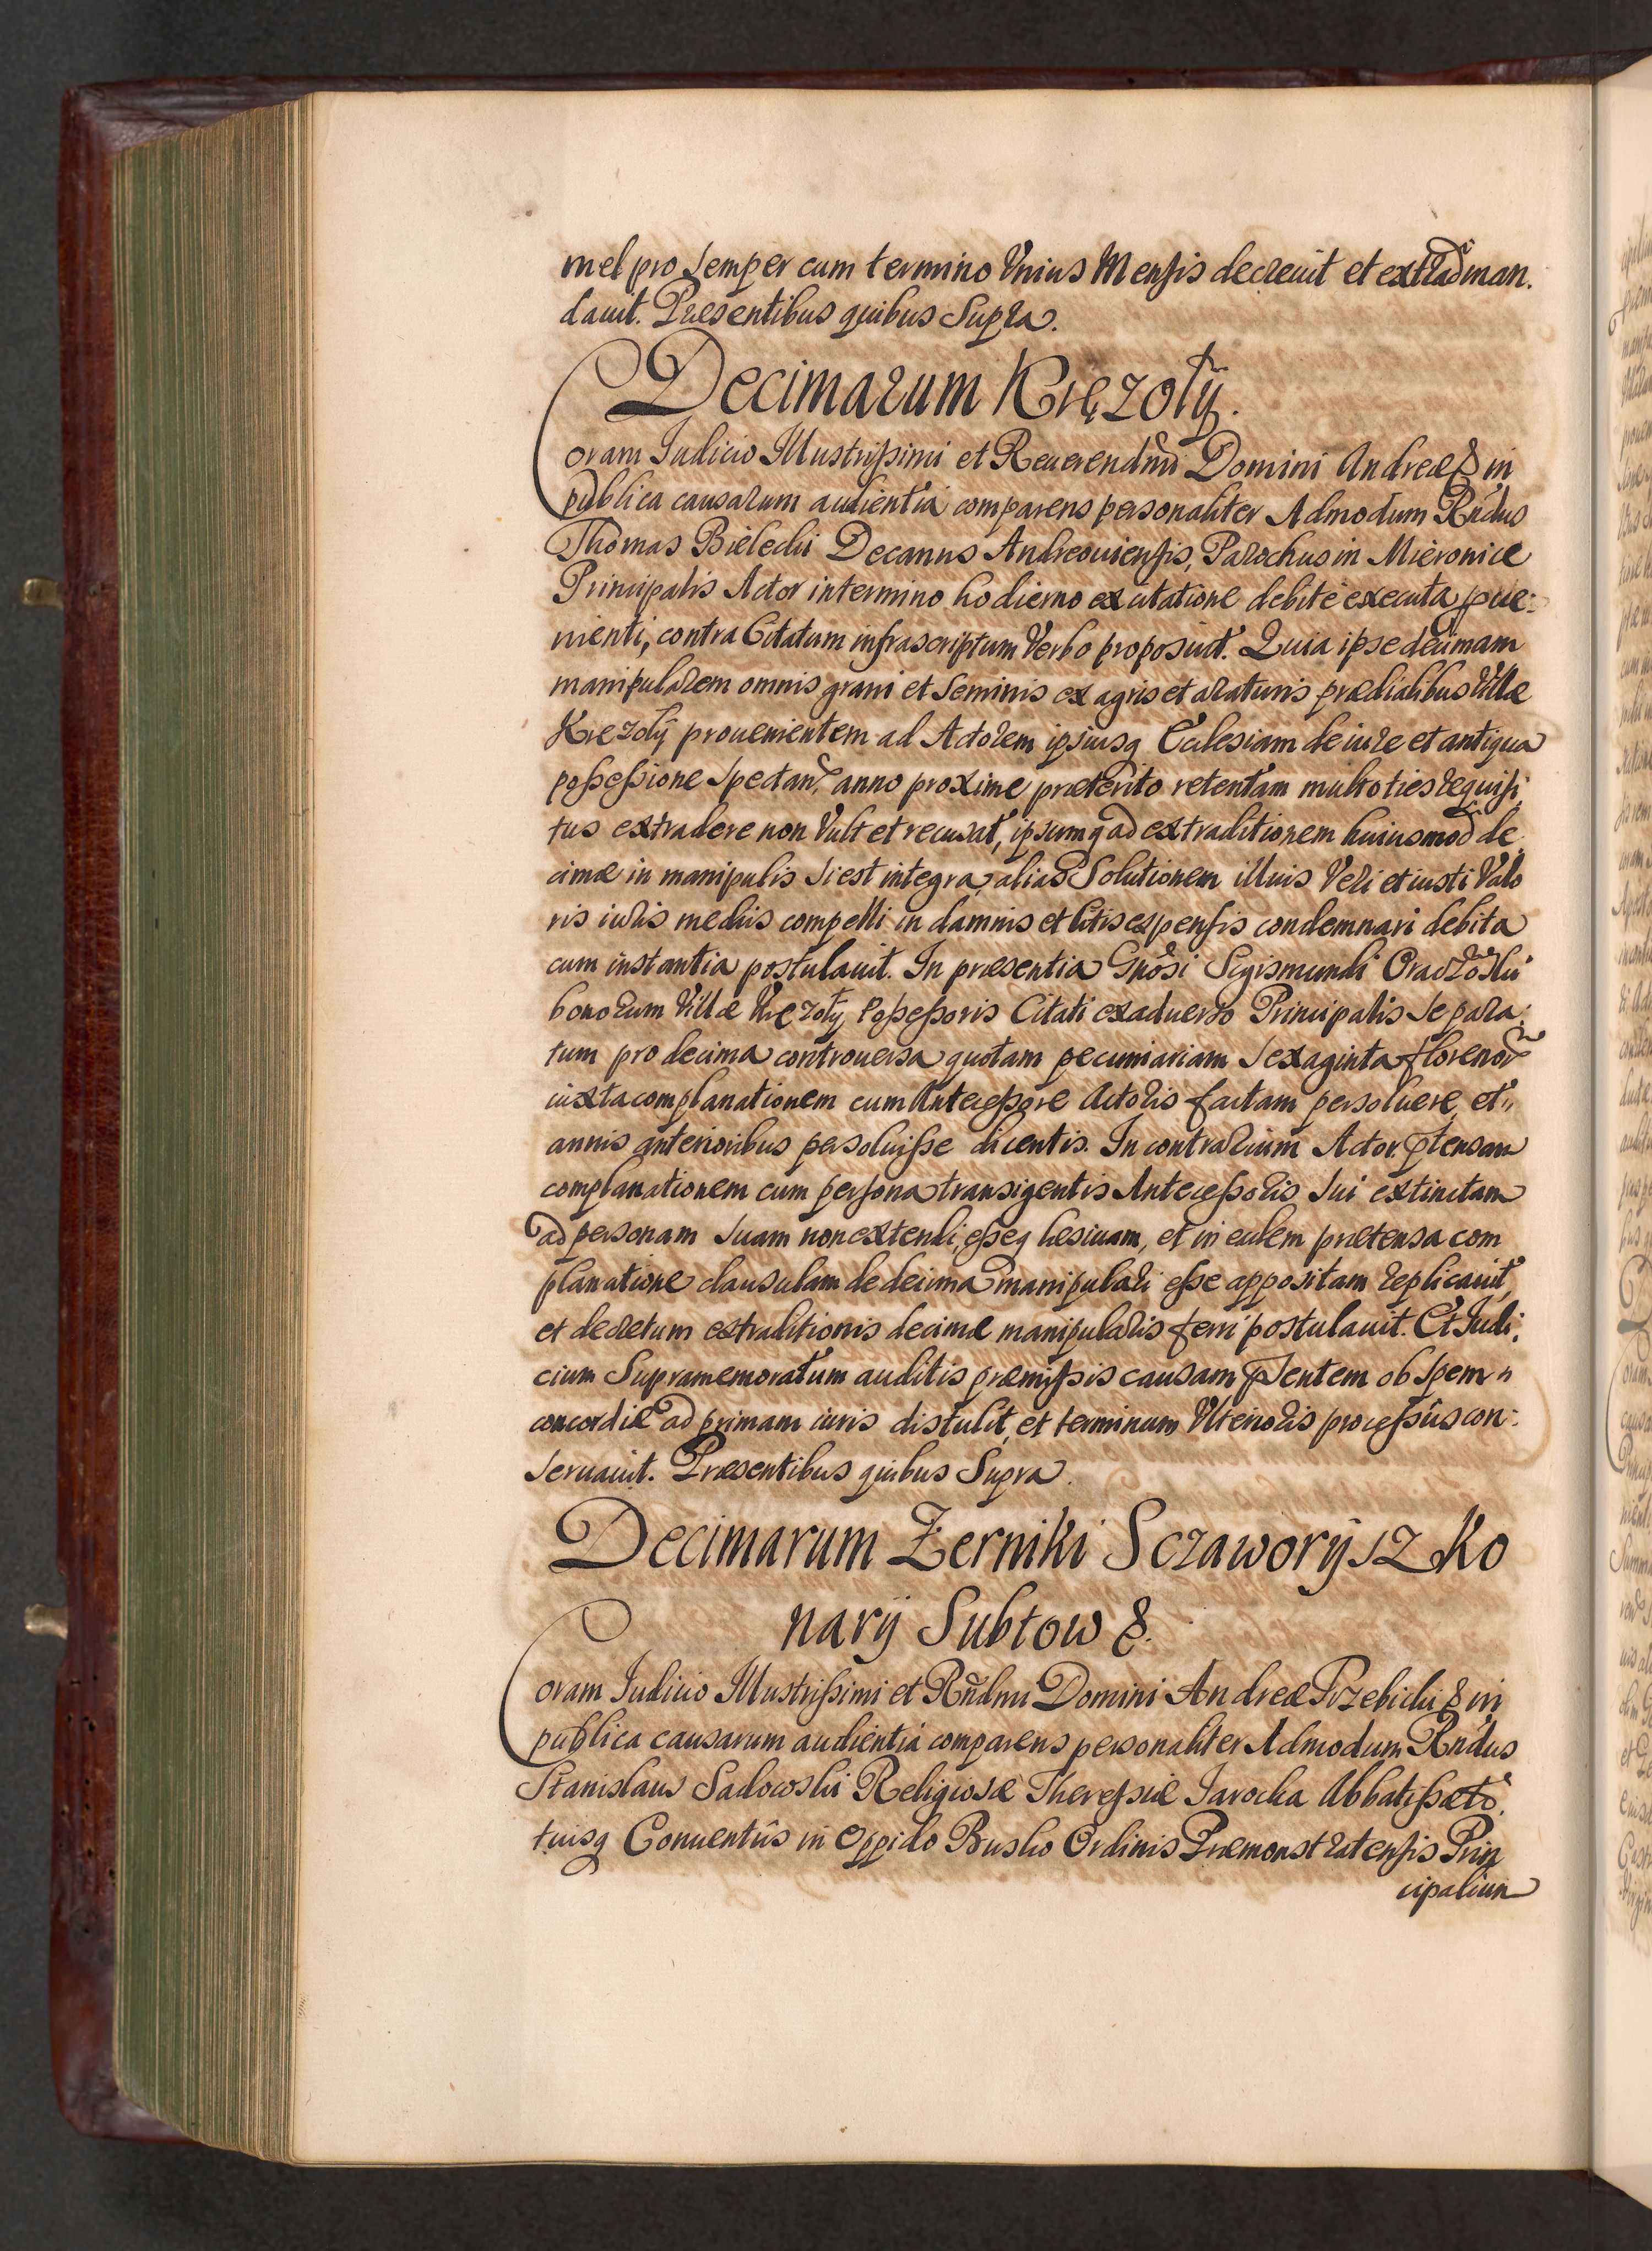 mel pro semper cum termino Vnius Mensis decreuit et extrad man.
dauit. Præsentibus quibus Supra.
Decimarum Kręzoły.
Coram Iudicio Illustrissimi et Reuerendmi Domini Andreæ & in
publica causarum audientia comparens personaliter Admodum Rndus
Thomas Bielecki Decanus Andreouiensis, Parochus in Mieronice
Principalis Actor in termino hodierno ex citatione debite executa proue:
nienti, contra Citatum infrascriptum Verbo proposuit. Quia ipse decimam
manipularem omnis grani et seminis ex agris et araturis prædialibus Villæ
Krezoły prouenientem ad Actorem ipsiusq Ecclesiam de iure et antiqua
possessione spectan. anno proxime præterito retentam multoties requisi,
tus extradere non Vult et recusat, ipsumq ad extraditionem huiusmod de
cimæ in manipulis si est integra, alias Solutionem illius Veri et iusti Valo
ris iuris mediis compelli in damnis et litis expensis condemnari debita
cum instantia postulauit. In præsentia Gnosi Sigismundi Oraczowski
bonorum Villæ Krezoły Possessoris Citati ex aduerso Principalis se para:
tum pro decima controuersa quotam pecuniariam sexaginta florenor
iuxta complanationem cum Antecessore Actoris factam persoluere, et
annis anterioribus persoluisse dicentis. In contrarium Actor. ptensam
complanationem cum persona transigentis Antecessoris sui extinctam
ad personam suam non extendi, esseq lesiuam, et in eadem prætensa com
planatione clausulam de decima manipulari esse appositam replicauit,
et decretum extraditionis decimæ manipularis ferri postulauit. Et Iudi,
cium Supramemoratum auditis præmissis causam psentem ob spem
concordiæ ad primam iuris distulit, et terminum Vlterioris processus con:
seruauit. Præsentibus quibus Supra.
Decimarum Żerniki Sczaworyſz Ko
nary Subtow &.
Coram Iudicio Illustrissimi et Rndmi Domini Andreæ Trzebicki & in
publica causarum audientia comparens personaliter Admodum Rndus
Stanislaus Sadowski Religiosæ Theressiæ Jarocka Abbatissæ to
tiusq Conuentus in Oppido Busko Ordinis Præmonstratensis Prin
cipalium